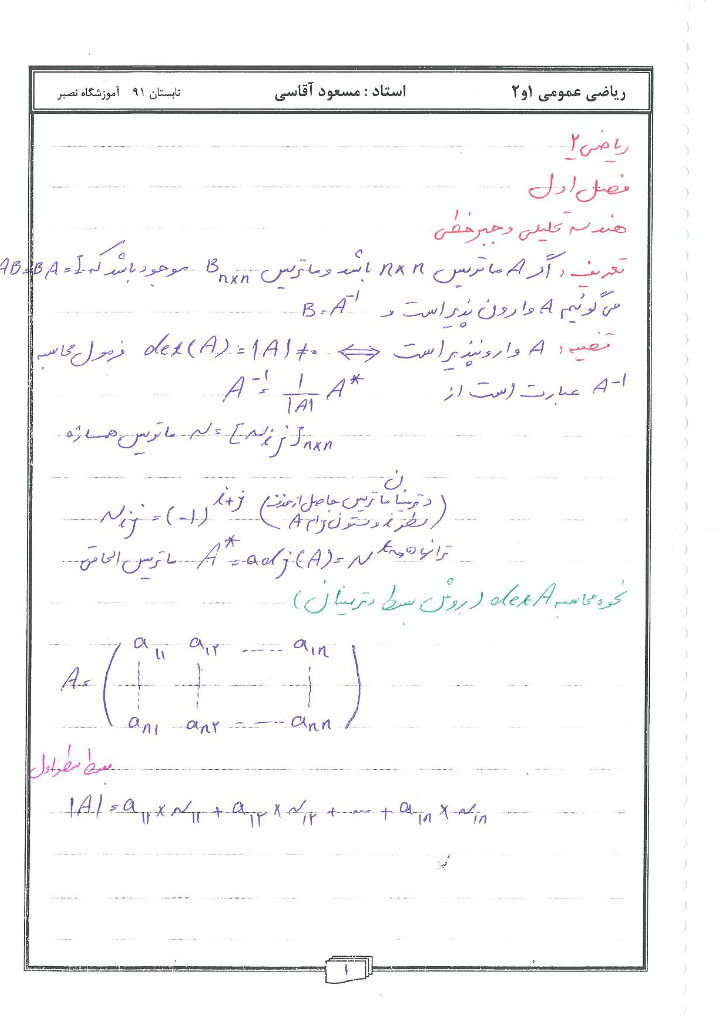 ریاضی عمومی ۱و۲ استاد : مسعود آقاسی تابستان ۹۱ آموزشگاه نصیر
ریاضی ۲
فصل اول
هندسه تحلیلی و جبر خطی
تعریف: اگر A ماتریس n×n باشد و ماتریس Bₙₓₙ موجود باشد که AB=BA=I
می‌گوئیم A وارون پذیر است و B=A⁻¹
قضیه: A وارونپذیر است ⟺ det(A)=|A|≠۰ فرمول محاسبه
A⁻¹ عبارت است از A⁻¹ = 1/|A| A*
ماتریس همسازه N=[Nij]n×n
Nij=(-1)^(i+j) (دترمینان ماتریس حاصل از حذف
سطر i و ستون j ام A)
ماتریس الحاقی A*=adj(A)=N^t ترانهاده
نحوه محاسبه det A (روش بسط دترمینان)
A= ( a₁₁ a₁₂ ---- a₁n
an1 an2 ---- ann )
بسط سطر اول
|A|=a₁₁×N₁₁+a₁₂×N₁₂+ --- +a₁n×N₁n
۱